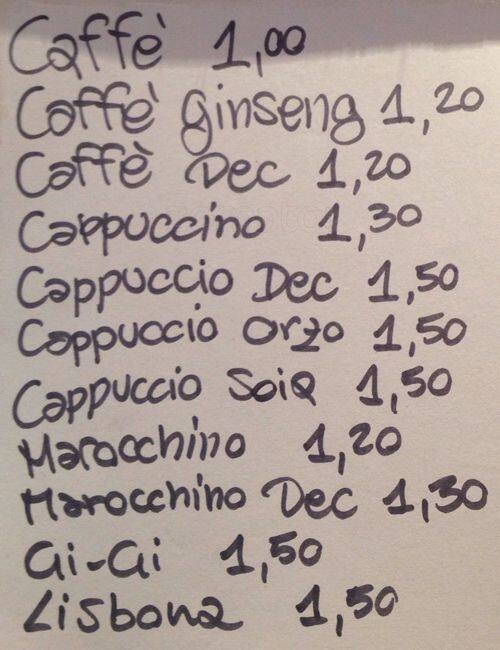 Caffè 1,00
Caffè Ginseng 1,20
Caffè Dec 1,20
Cappuccino 1,30
Cappuccio Dec 1,50
Cappuccio Orzo 1,50
Cappuccio Soia 1,50
Marocchino 1,20
Marocchino Dec 1,30
Gi-Gi 1,50
Lisbona 1,50